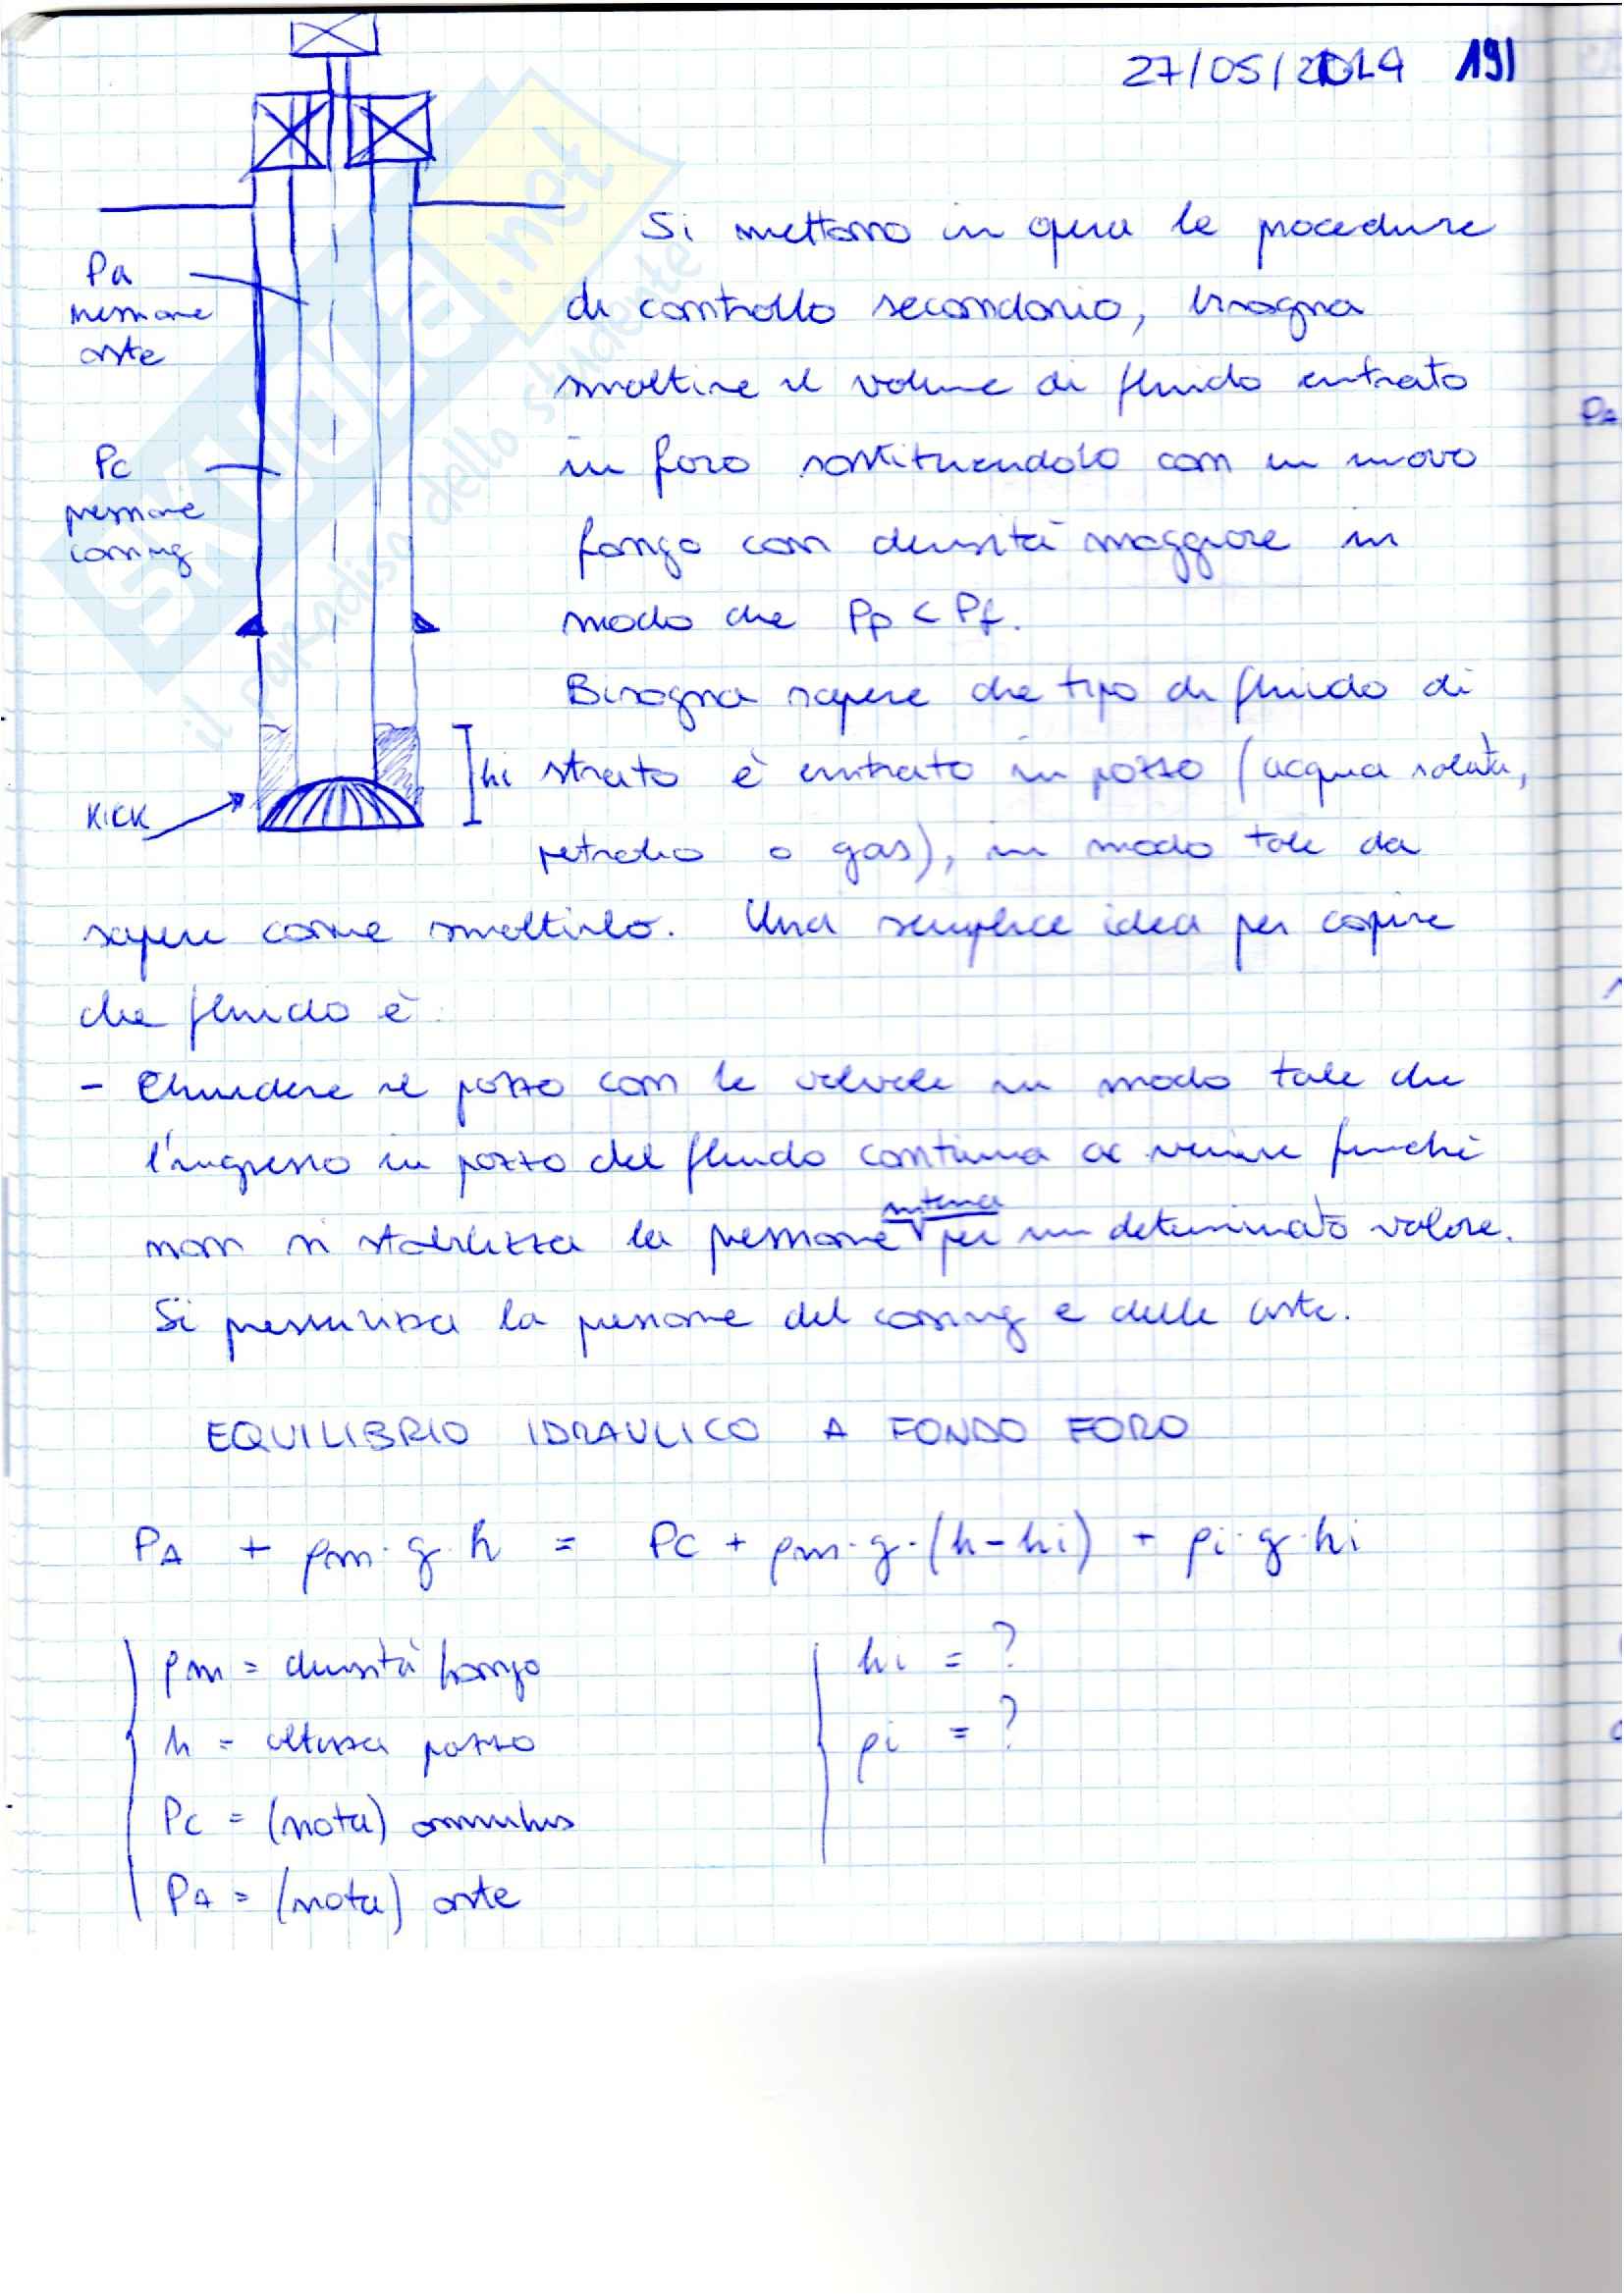 27/05/2014 191
Si mettono in opera le procedure
di controllo secondario, bisogna
smaltire il volume di fluido entrato
in foro sostituendolo con un nuovo
fango con densità maggiore in
modo che Pp < Pf.
Bisogna sapere che tipo di fluido di
strato è entrato in pozzo (acqua salata,
petrolio o gas), in modo tale da
sapere come smaltirlo. Una semplice idea per capire
che fluido è:
- Chiudere il pozzo con le valvole in modo tale che
l'ingresso in pozzo del fluido continua a venire finché
non si stabilizza la pressione interna per un determinato valore.
Si pressurizza la pressione del casing e delle aste.
Pa
pressione
aste
Pc
pressione
casing
KICK
hi
EQUILIBRIO IDRAULICO A FONDO FORO
PA + ρm · g · h = Pc + ρm · g · (h - hi) + ρi · g · hi
ρm = densità fango
h = altezza pozzo
Pc = (nota) annulus
PA = (nota) aste
hi = ?
ρi = ?
SKUOLA.net
il paradiso dello studente
PA